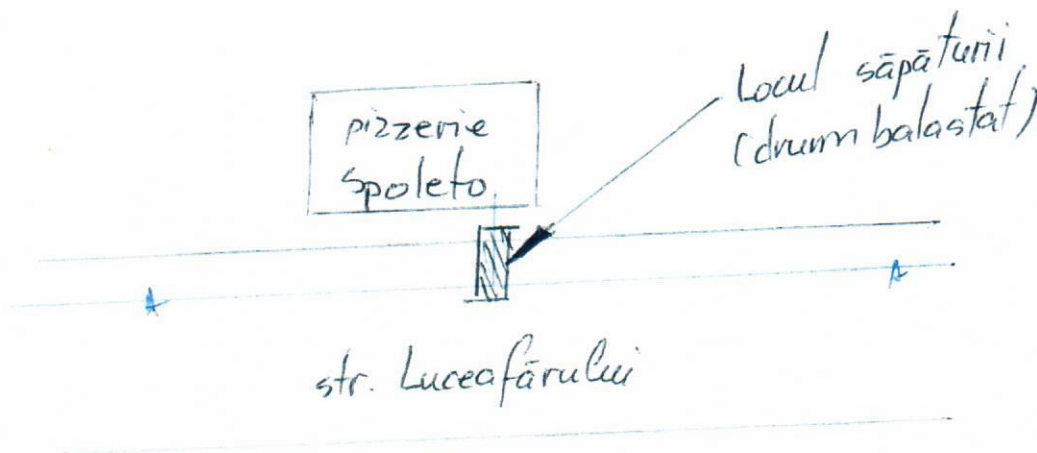 pizzerie
Spoleto
Locul săpăturii
(drum balastat)
A
A
str. Luceafărului